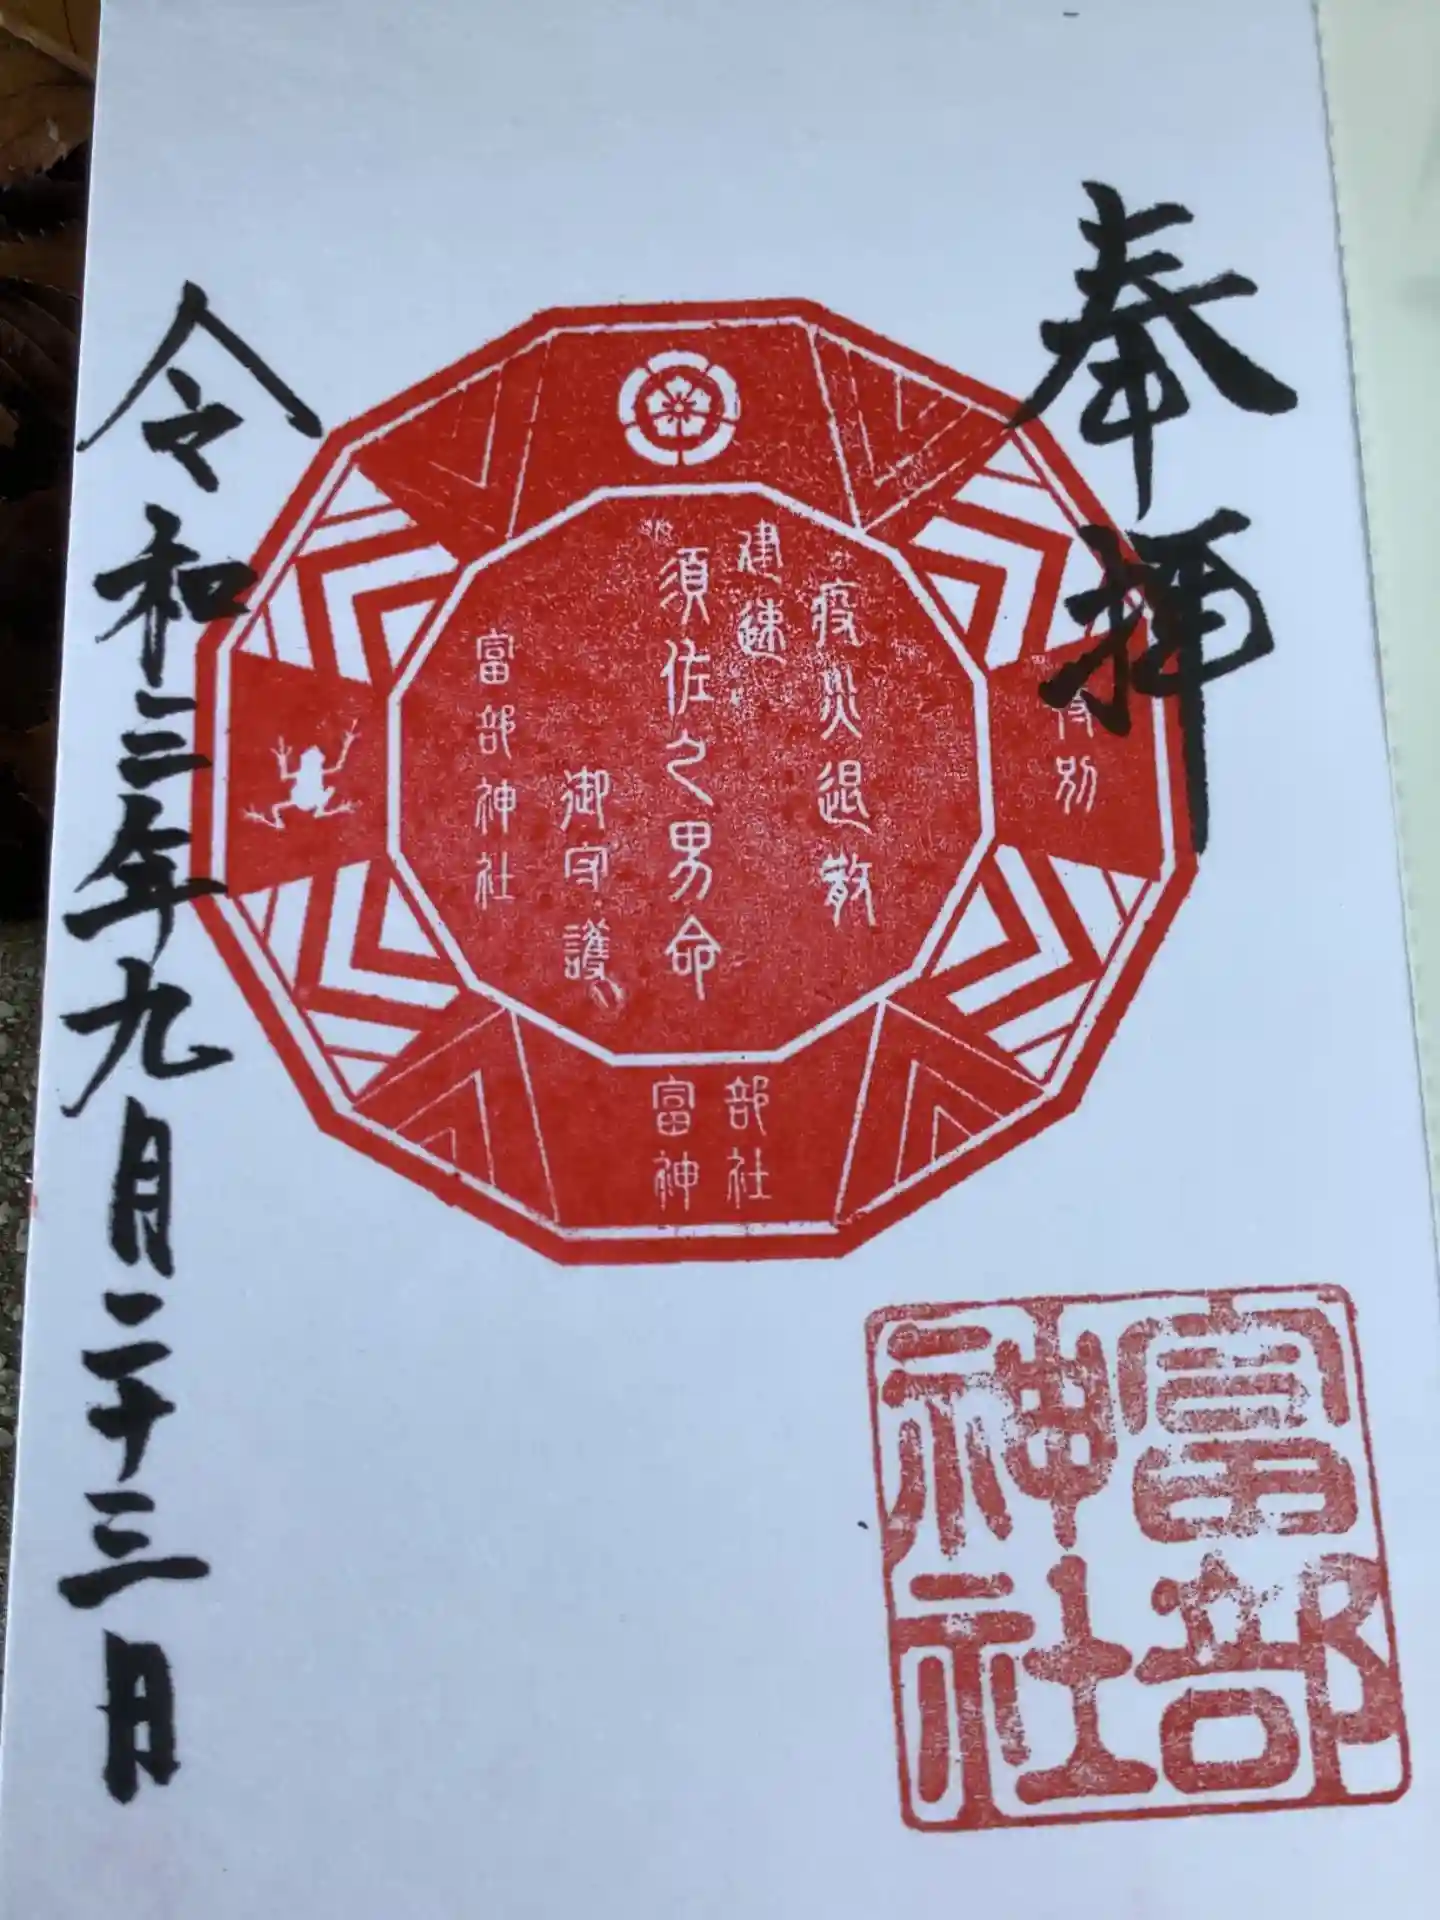 奉拝
特別
疫災退散
建速
須佐之男命
御守護
富部神社
富部
神社
富部
神社
令和三年九月二十三日